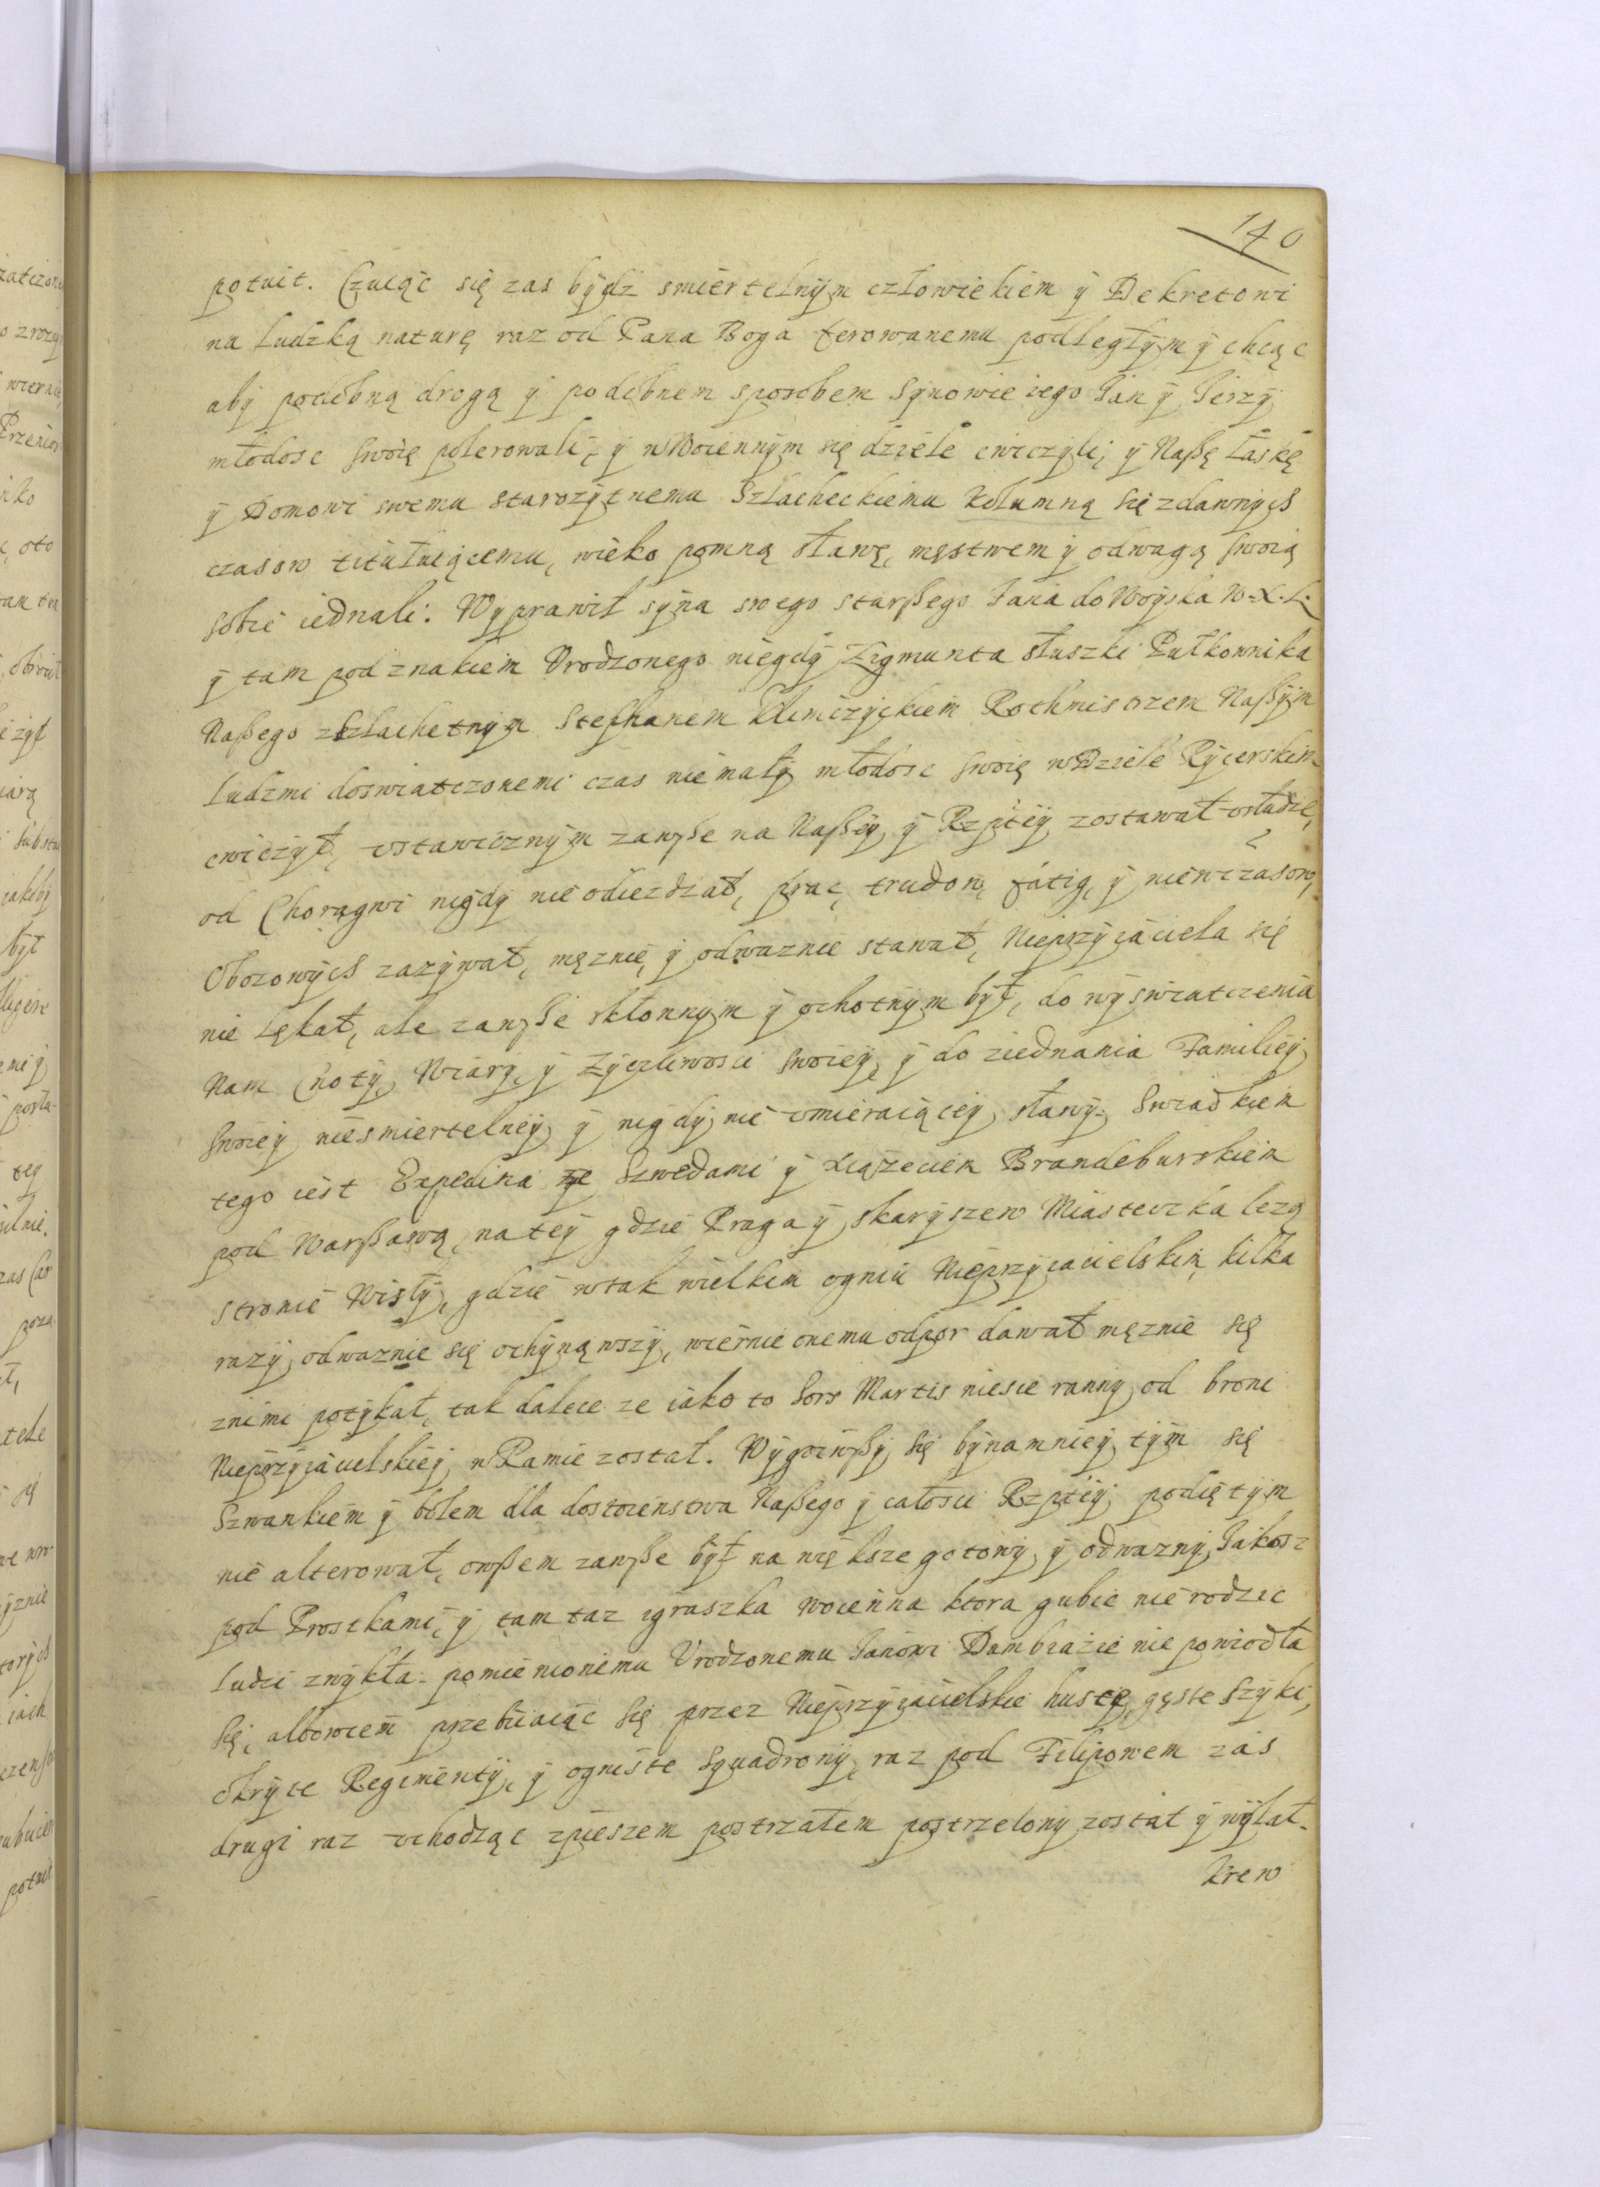 140
potuit. Czuiąc się zas bydz smiertelnÿm człowiekiem ÿ Dekretowi
na ludzką naturę raz od Pana Boga ferowanemu podległÿm ÿ chcąc
abÿ podobną drogą ÿ podobnem sposobem Sÿnowie iego Jan ÿ Jerzÿ
młodosc swoię polerowali, ÿ w Woiennÿm się dziele cwiczÿli, ÿ Naßę łaskę
ÿ Domowi swemu starozÿtnemu Szlacheckiemu Kolumną się z dawnÿch
czasow titułuiącemu, wieko pomną sławę, męstwem ÿ odwagą swoią
sobie iednali. Wÿprawił sÿna swego starßego Jana do Woÿska W. X. L.
ÿ tam pod znakiem Vrodzonego niegdÿ Zÿgmunta Słuszki Pułkownika
Naßego z Szlachetnÿm Stephanem Klimczÿckiem Rothmistrzem Naßÿm
Ludzmi doswiatczonemi czas niemałÿ młodosc swoię w Dziele Rÿcerskim
cwiczÿł, vstawicznÿm zawße na Naßeÿ ÿ Rzpteÿ zostawał vsłudze,
od Chorągwi nigdÿ nie odiezdzał, prac, trudow, fatig, ÿ niewczasow,
Obozowÿch zazÿwał, męznie, ÿ odwaznie stawał, Nieprzÿiaciela się
nie lękał, ale zawße skłonnÿm ÿ ochotnÿm bÿł, do wÿswiatczenia
Nam Cnotÿ, Wiarÿ, ÿ Zÿczliwosci swoieÿ, ÿ do ziednania Familieÿ
swoieÿ niesmiertelneÿ, ÿ nigdÿ nie vmieraiąceÿ, sławÿ. Swiadkiem
tego iest Expedina ze Szwedami ÿ Xiązeciem Brandeburskiem
pod Warßawą, na teÿ gdzie Praga ÿ Skarÿszew Miasteczka lezą
stronie Wisłÿ, gdzie w tak wielkim ogniu Nieprzÿiacielskim, kilka
razÿ, odwaznie się ochÿnąwszÿ, wiernie onemu odpor dawał męznie się
znimi potÿkał, tak dalece ze iako to Sors Martis niesie rannÿ, od broni
Nieprzÿiacielskieÿ w Ramie został. Wÿgoiwßÿ się bÿnamnieÿ tÿm się
Szwankiem ÿ bolem dla dostoienstwa Naßego ÿ całosci Rzpteÿ podiętÿm
nie alterował, owßem zawße bÿł na większe gotowÿ, ÿ odwaznÿ, Jakosz
pod Prostkami, ÿ tam taz igraszka woienna ktora gubic nie rodzic
ludzi zwÿkła. pomienionemu Vrodzonemu Janowi Dambrazie nie powiodła
się, albowiem przebiiaiąc się przez Nieprzÿiacielskie hufce, gęste szÿki,
okrÿte Regimentÿ, ÿ ogniste Squadronÿ, raz pod Filipowem zas
drugi raz vchodząc zpieszem postrzałem postrzelonÿ został ÿ wÿlał
krew